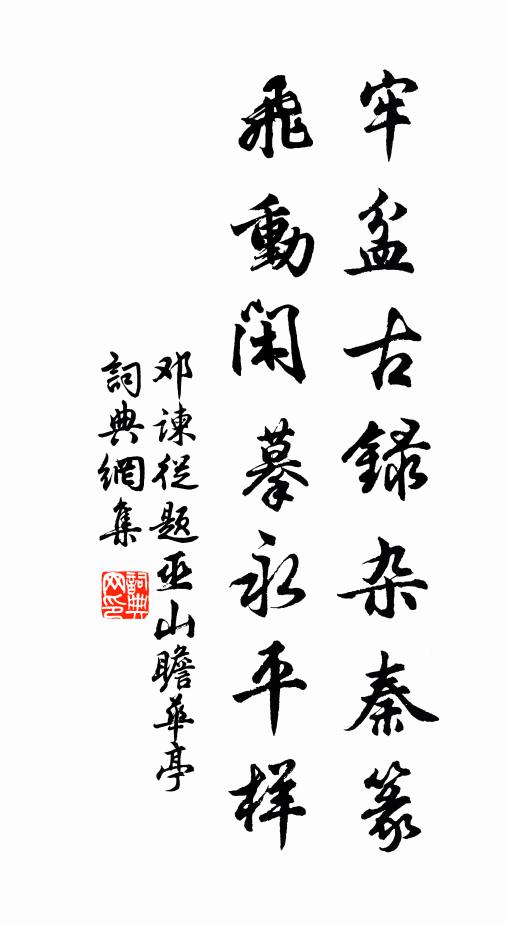 牢盆古録杂秦篆
飛動閑摹永平样
邓諫從题巫山瞻華亭
詞典網集
詞典网印